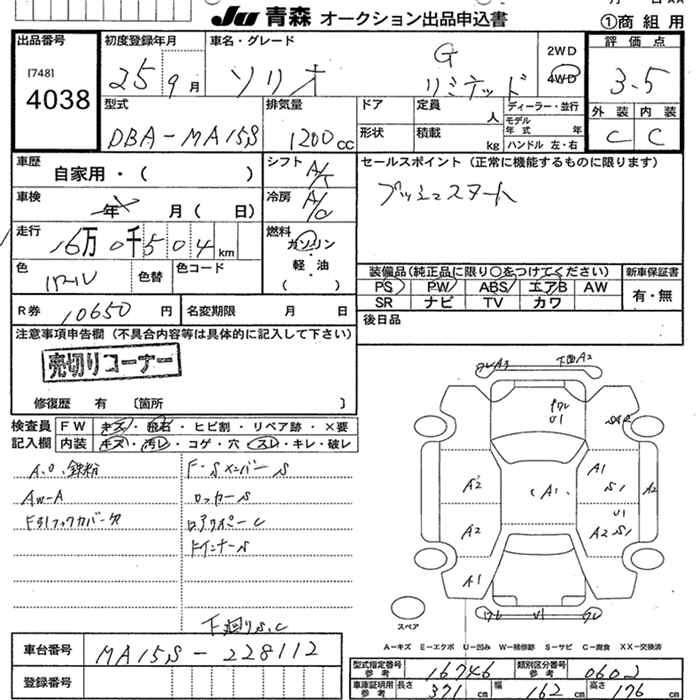 JU 青森 オークション出品申込書
①商 組 用
出品番号
[748]
4038
初度登録年月
25 9 月
車名・グレード
ソリオ
G
リミテッド
2WD
4WD
評 価 点
3.5
外 装 内 装
C C
型式
DBA-MA15S
排気量
1200 CC
ドア
形状
定員 人
積載 kg
ディーラー・並行
モデル年式 年
ハンドル 左・右
車歴
自家用・( )
シフト
A/T
セールスポイント (正常に機能するものに限ります)
プッシュスタート
車検
年 月 ( 日)
冷房
A/C
走行
16万0千504 km
燃料
ガソリン
軽・油
( )
色
パール
色替
色コード
装備品(純正品に限り〇をつけてください)
PS PW ABS エアB AW
SR ナビ TV カワ
新車保証書
有・無
R券
10650 円
名変期限 月 日
後日品
注意事項申告欄 (不具合内容等は具体的に記入して下さい)
売切りコーナー
修復歴 有 〔箇所 〕
検査員記入欄
FW キズ・飛石・ヒビ割・リペア跡・×要
内装 キズ・汚レ・コゲ・穴・スレ・キレ・破レ
A.O.鉄粉
AW-A
F-SメンバーS
ロッカーS
ドインナーS
下廻りS.C
A3
下面A2
U1
A1
S1
A2
A2
(A1)
U1
A2
A2
S1
A1
U1
スペア
A-キズ E-エクボ U-凹み W-補修跡 S-サビ C-腐食 XX-交換済
車台番号
MA15S-228112
登録番号
型式指定番号 参考
16746
類別区分番号 参考
0602
車庫証明用 参考
長さ 371 cm
幅 162 cm
高さ 176 cm